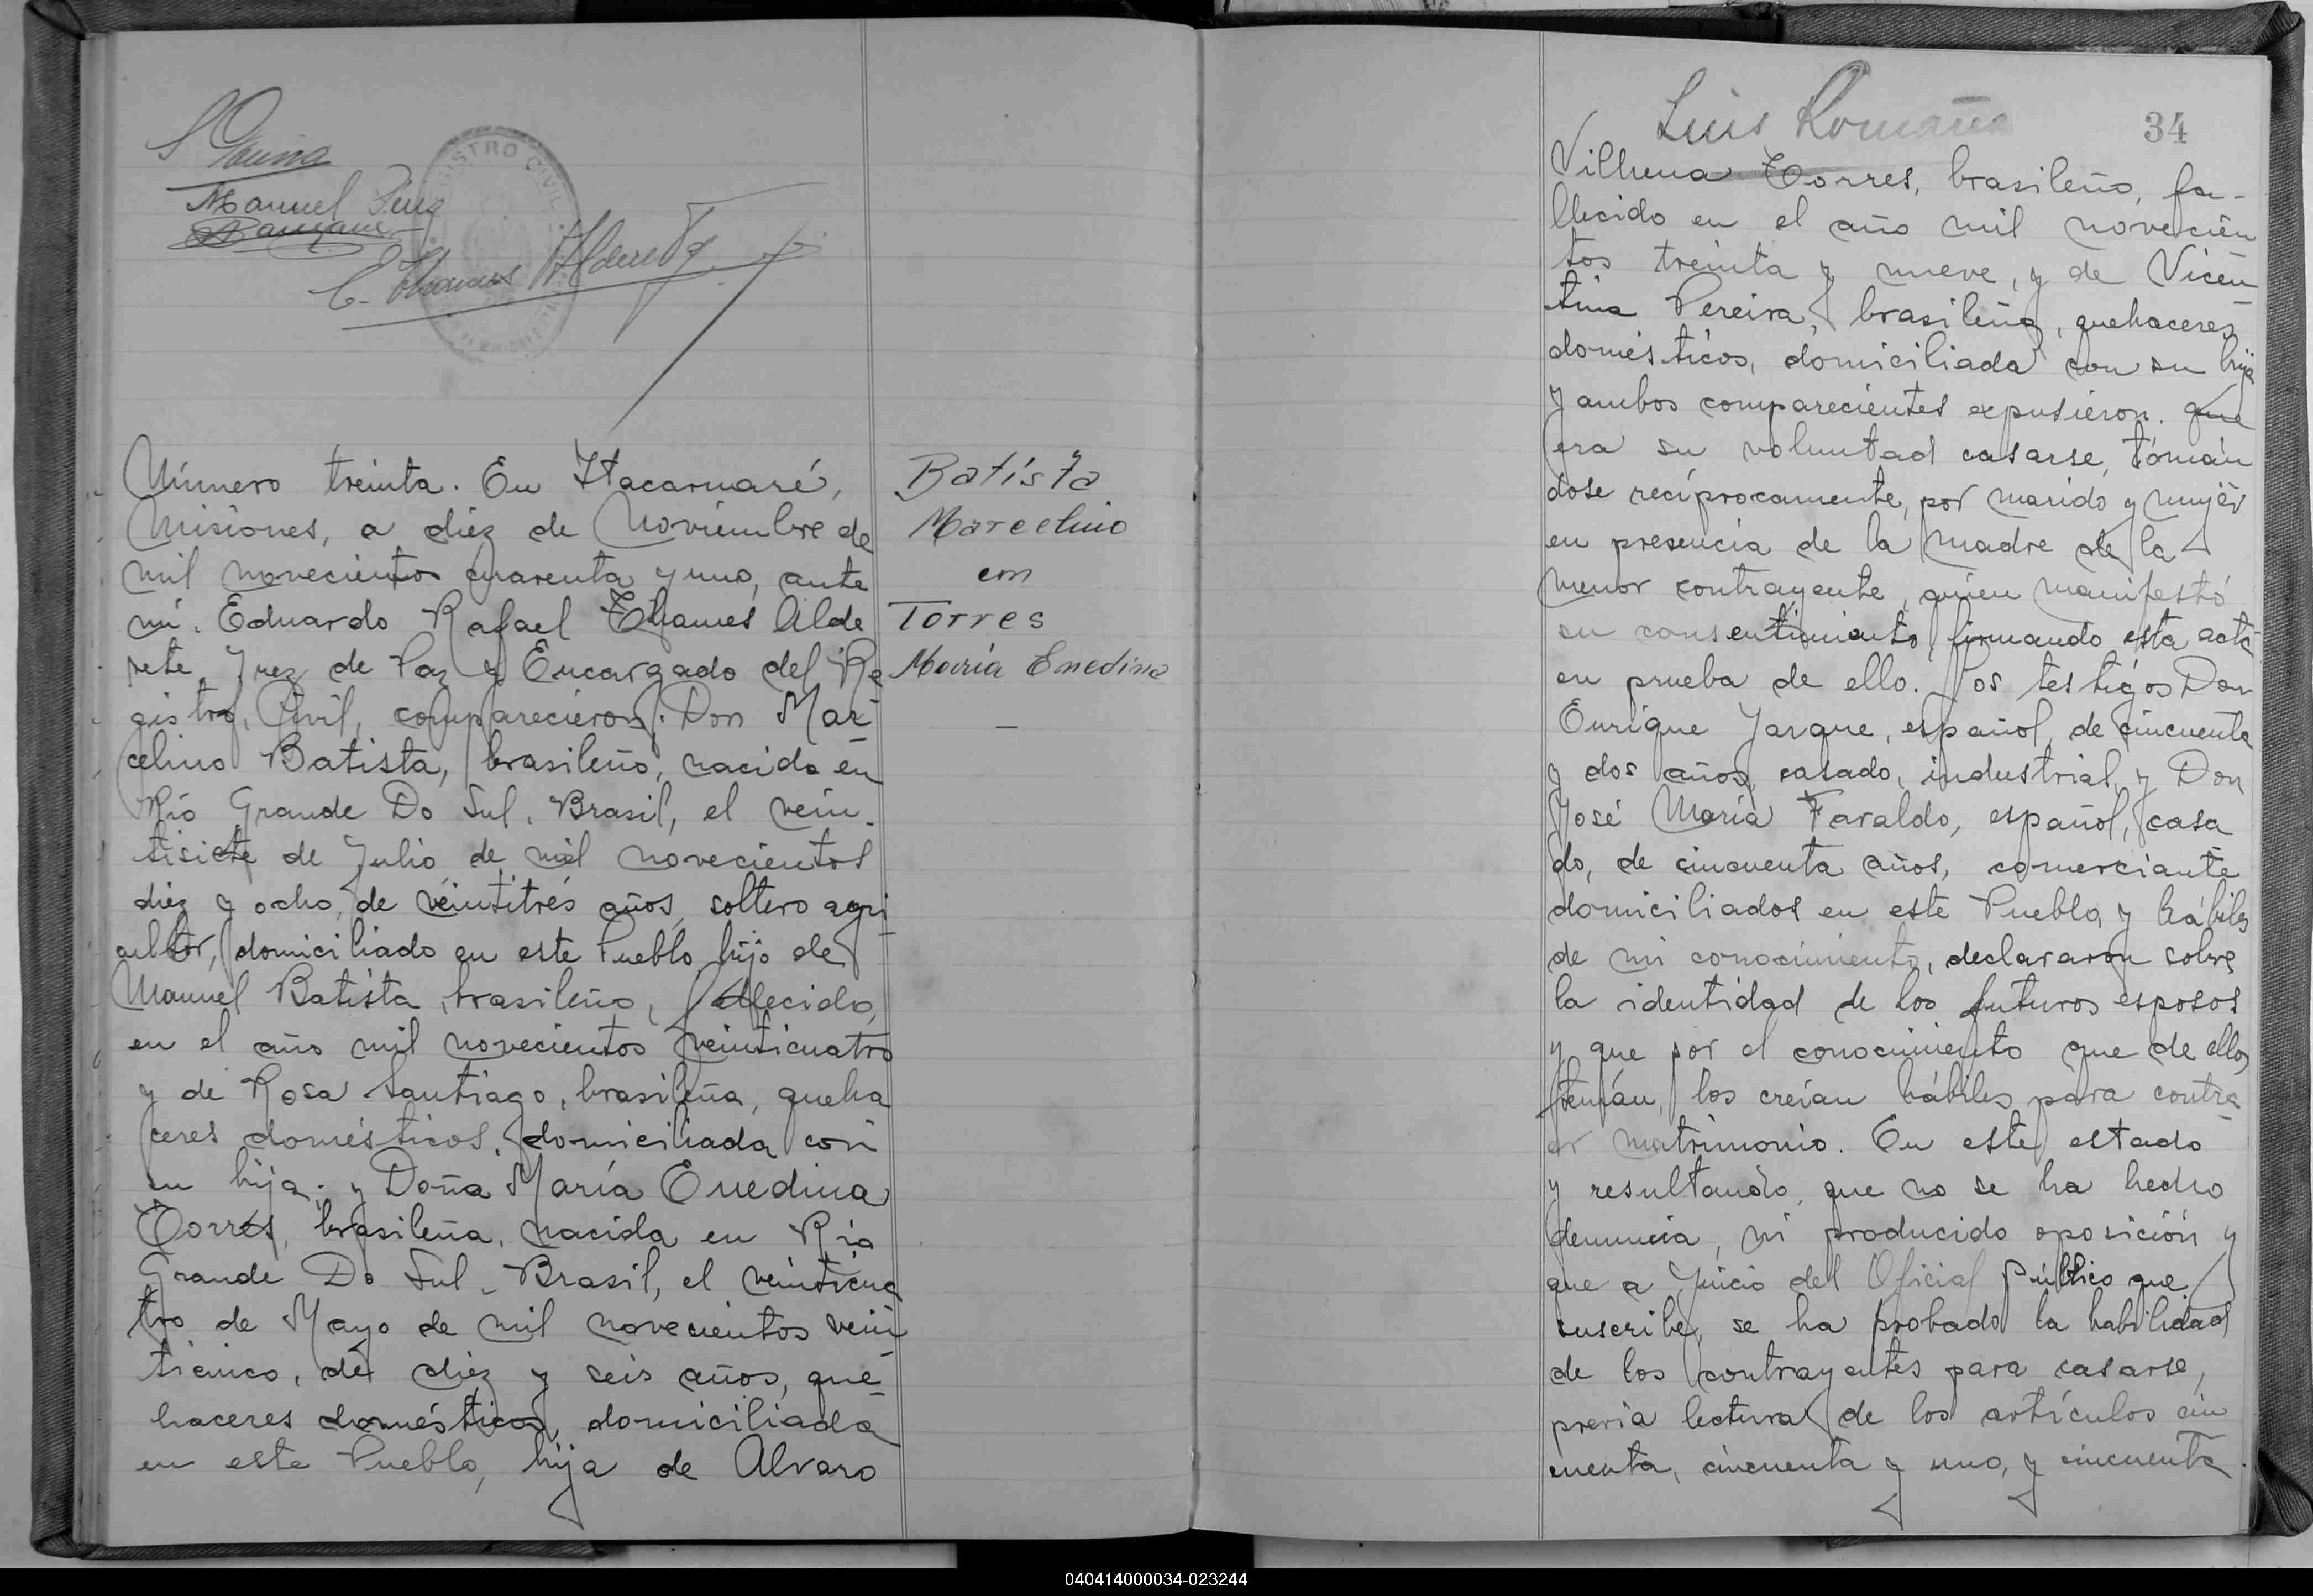 Manuel
REGISTRO CIVIL
E. Thames Alderete
Número treinta. En Itacaruaré,
Misiones, a diez de Noviembre de
mil novecientos cuarenta y uno, ante
mi. Eduardo Rafael Thames Alde
rete, Juez de Paz y Encargado del Re
gistro, Civil, comparecieron: Don Mar-
celino Batista, brasileño, nacido en
Río Grande Do Sul. Brasil, el vein-
tisiete de Julio de mil novecientos
diez y ocho, de veintitrés años, soltero agri
cultor, domiciliado en este Pueblo, hijo de
Manuel Batista, brasileño, fallecido,
en el año mil novecientos veinticuatro
y de Rosa Santiago, brasileña, queha
ceres domésticos, domiciliada con
su hija; y Doña María Enedina
Torres, brasileña, nacida en Río
Grande Do Sul, Brasil, el veinticua
tro de Mayo de mil novecientos vein
ticinco, de diez y seis años, que-
haceres domésticos, domiciliada
en este Pueblo, hija de Alvaro
Batista
Marcelino
con
Torres
María Enedina
—
Luis Romaña
34
Vilhena Torres, brasileño, fa-
llecido en el año mil novecien
tos treinta y nueve, y de Vicen
tina Pereira, brasileña, quehaceres
domésticos, domiciliada con su hija
y ambos comparecientes expusieron. que
era su voluntad casarse, tomán
dose recíprocamente, por marido y mujer
en presencia de la madre de la
menor contrayente, quien manifestó
su consentimiento, firmando esta acta
en prueba de ello. Los testigos Don
Enrique Jarque, español, de cincuenta
y dos años, casado, industrial, y Don
José María Faraldo, español, casa
do, de cincuenta años, comerciante
domiciliados en este Pueblo, y hábiles
de mi conocimiento, declararon sobre
la identidad de los futuros esposos
y que por el conocimiento que de ellos
tenían, los creían hábiles para contra
er matrimonio. En este estado
y resultando, que no se ha hecho
denuncia, ni producido oposición y
que a Juicio del Oficial Público que
suscribe, se ha probado la habilidad
de los contrayentes para casarse,
previa lectura de los artículos cin
cuenta, cincuenta y uno, y cincuenta
040414000034-023244